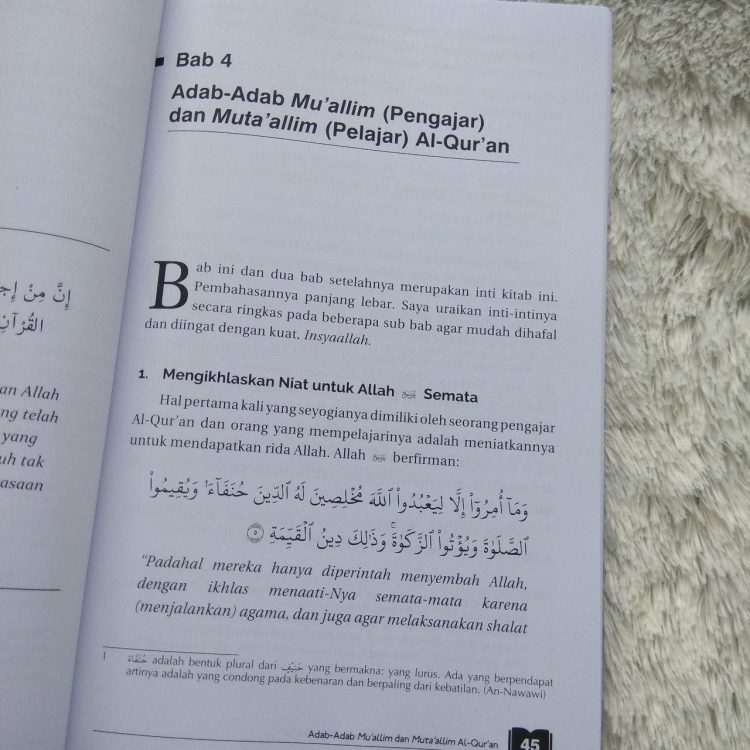 إِنَّ مِنْ إِج
القُرْآنِ
an Allah
ng telah
yang
uh tak
asaan
Bab 4
Adab-Adab Mu'allim (Pengajar)
dan Muta'allim (Pelajar) Al-Qur'an
Bab ini dan dua bab setelahnya merupakan inti kitab ini.
Pembahasannya panjang lebar. Saya uraikan inti-intinya
secara ringkas pada beberapa sub bab agar mudah dihafal
dan diingat dengan kuat, Insyaallah.
1. Mengikhlaskan Niat untuk Allah Semata
Hal pertama kali yang seyogianya dimiliki oleh seorang pengajar
Al-Qur'an dan orang yang mempelajarinya adalah meniatkannya
untuk mendapatkan rida Allah. Allah berfirman:
وَمَآ أُمِرُوٓا۟ إِلَّا لِيَعْبُدُوا۟ ٱللَّهَ مُخْلِصِينَ لَهُ ٱلدِّينَ حُنَفَآءَ¹ وَيُقِيمُوا۟
ٱلصَّلَوٰةَ وَيُؤْتُوا۟ ٱلزَّكَوٰةَ ۚ وَذَٰلِكَ دِينُ ٱلْقَيِّمَةِ ۝٥
"Padahal mereka hanya diperintah menyembah Allah,
dengan ikhlas menaati-Nya semata-mata karena
(menjalankan) agama, dan juga agar melaksanakan shalat
1 حُنَفَاءَ adalah bentuk plural dari حَنِيْفٍ yang bermakna: yang lurus. Ada yang berpendapat
artinya adalah yang condong pada kebenaran dan berpaling dari kebatilan. (An-Nawawi)
Adab-Adab Mu'allim dan Muta'allim Al-Qur'an 45